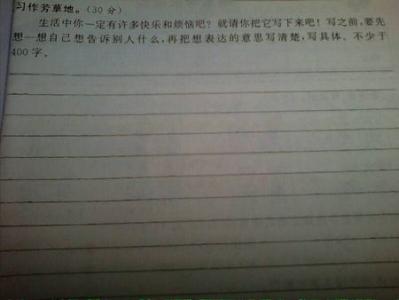 习作芳草地。(30分)
生活中你一定有许多快乐和烦恼吧?就请你把它写下来吧!写之前,要先
想一想自己想告诉别人什么,再把想表达的意思写清楚,写具体。不少于
400字。